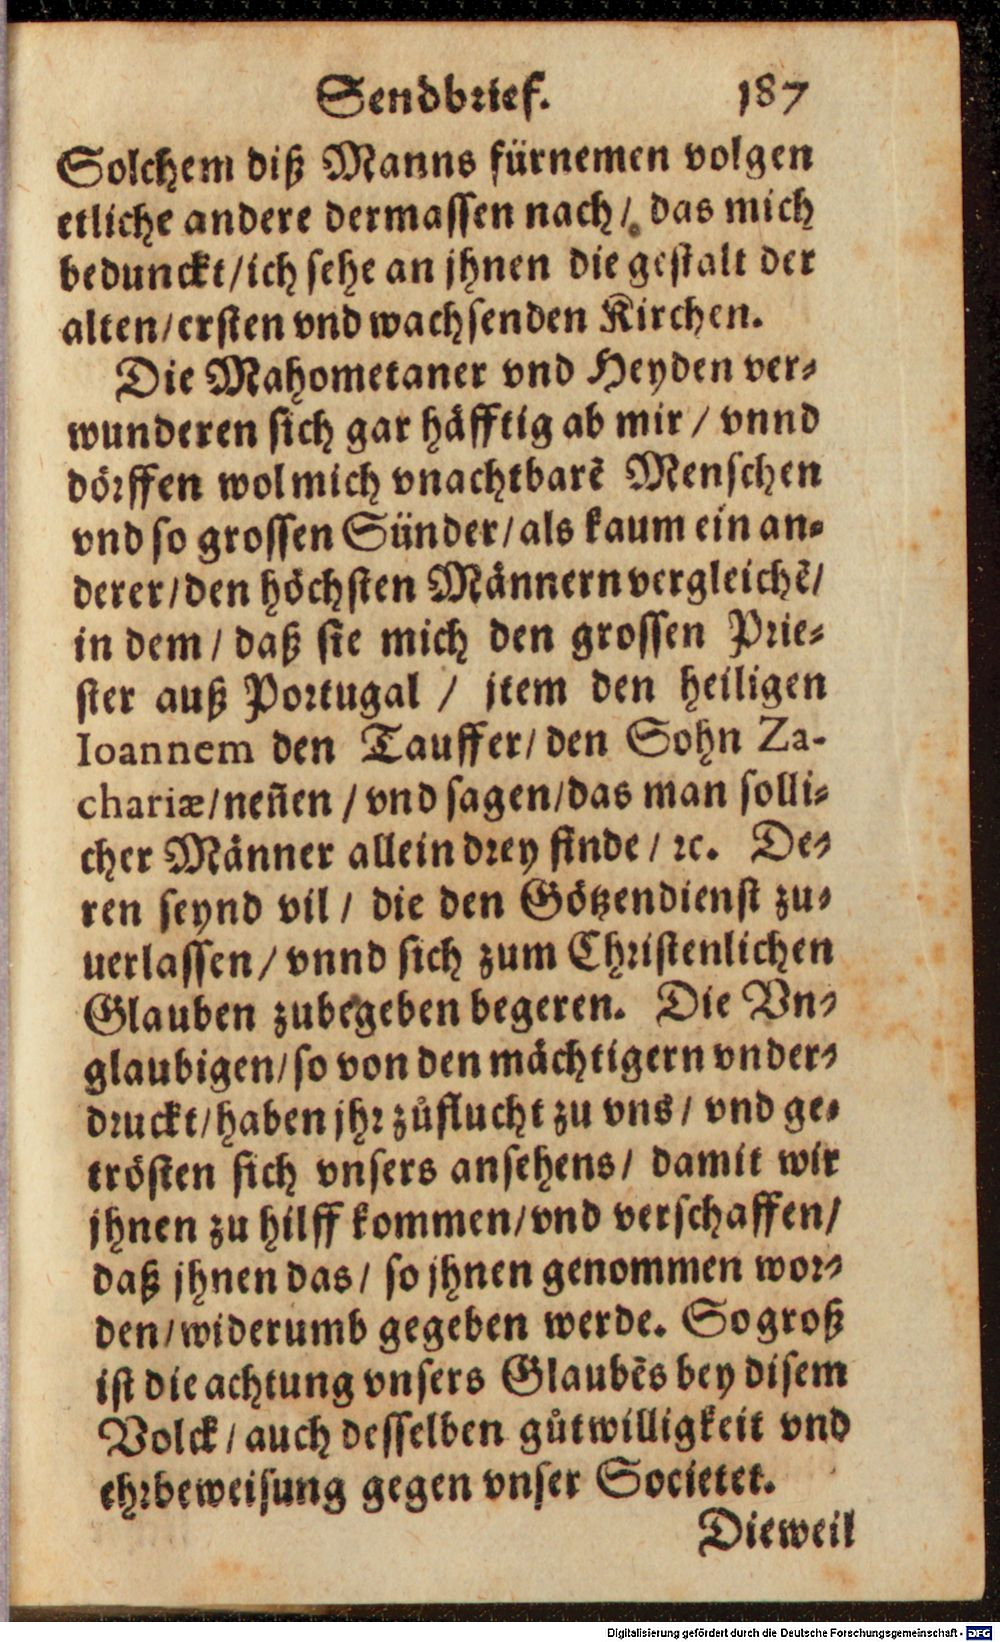 Sendbrief. 187
Solchem diß Manns fürnemen volgen
etliche andere dermassen nach/ das mich
bedunckt/ich sehe an jhnen die gestalt der
alten/ersten vnd wachsenden Kirchen.
Die Mahometaner vnd Heyden ver-
wunderen sich gar häfftig ab mir / vnnd
dörffen wol mich vnachtbarẽ Menschen
vnd so grossen Sünder/als kaum ein an-
derer/den höchsten Männern vergleichẽ/
in dem / daß sie mich den grossen Prie-
ster auß Portugal / jtem den heiligen
Ioannem den Tauffer/ den Sohn Za-
chariæ/neñen / vnd sagen/das man solli-
cher Männer allein drey finde / ꝛc. De-
ren seynd vil / die den Götzendienst zu-
uerlassen/ vnnd sich zum Christenlichen
Glauben zubegeben begeren. Die Vn-
glaubigen/so von den mächtigern vnder-
druckt/haben jhr zůflucht zu vns/ vnd ge-
trösten sich vnsers ansehens/ damit wir
jhnen zu hilff kommen/vnd verschaffen/
daß jhnen das/ so jhnen genommen wor-
den/widerumb gegeben werde. So groß
ist die achtung vnsers Glaubẽs bey disem
Volck/ auch desselben gůtwilligkeit vnd
ehrbeweisung gegen vnser Societet.
Dieweil
Digitalisierung gefördert durch die Deutsche Forschungsgemeinschaft - DFG